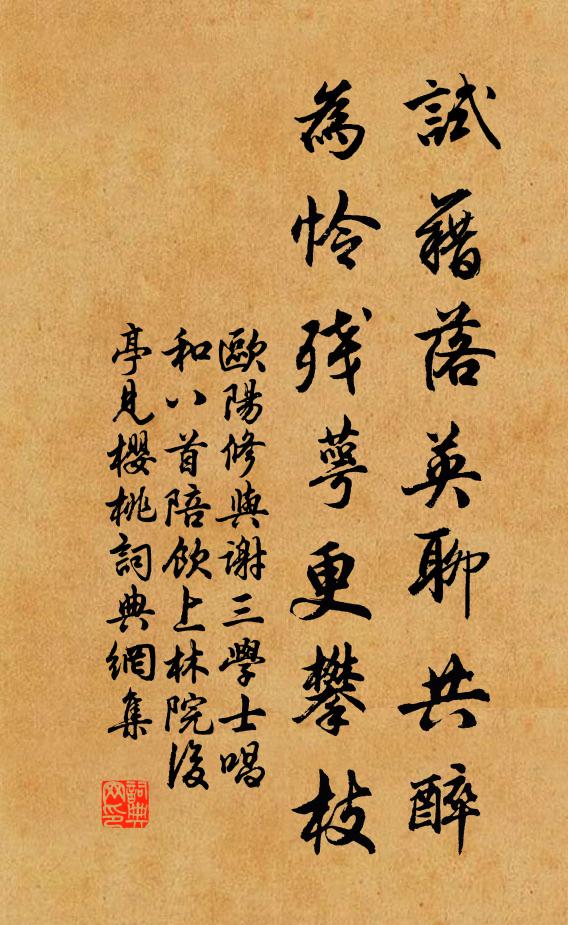 試藉落英聊共醉
為怜残萼更攀枝
歐陽修與謝三學士唱
和八首陪飲上林院後
亭見櫻桃詞典網集
詞典
网印